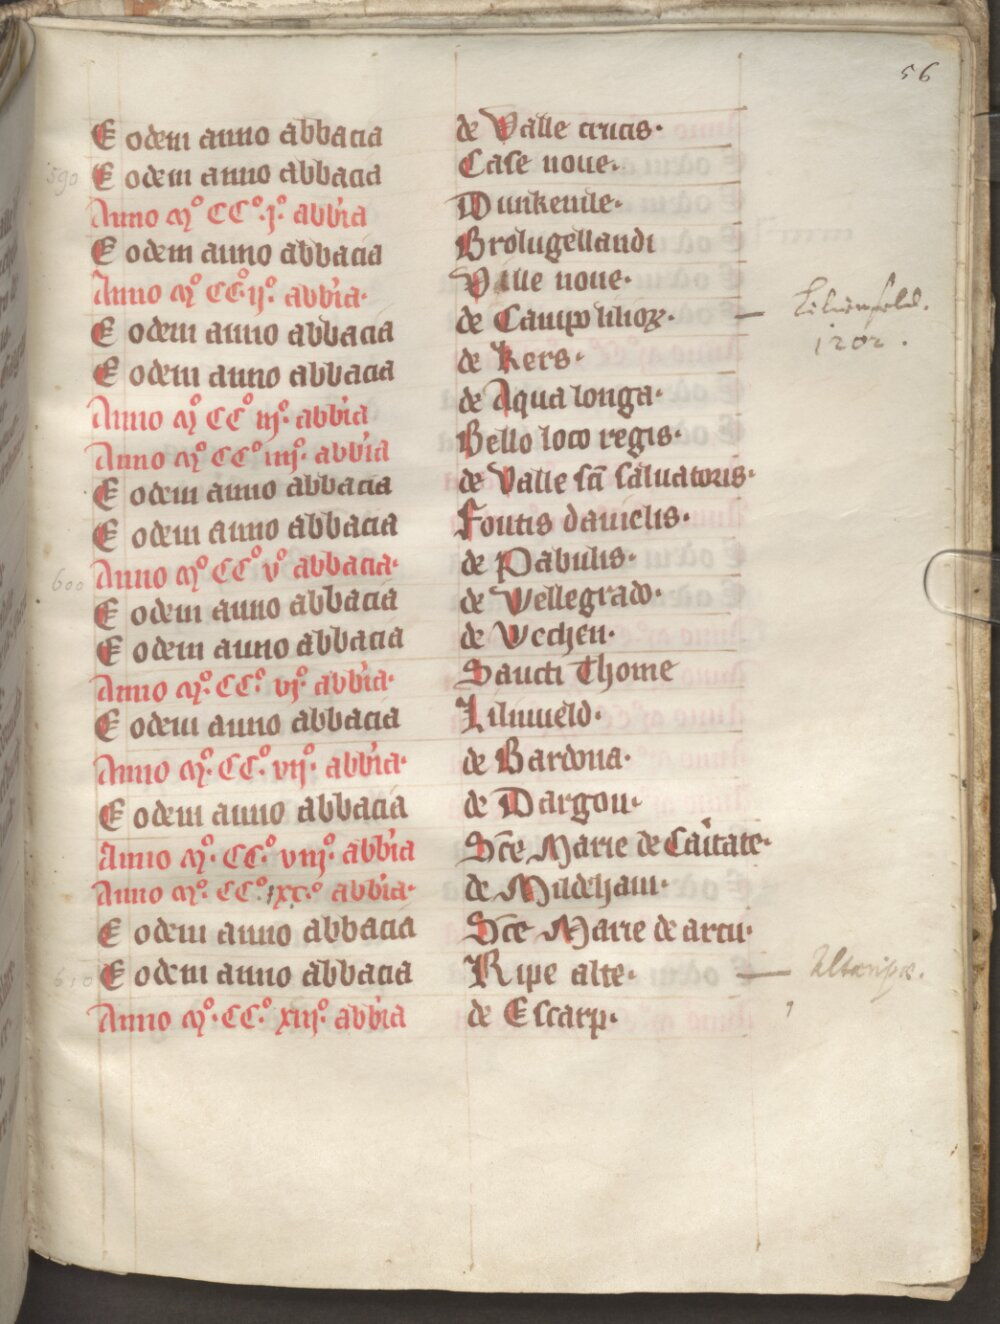 56
Eodem anno abbacia de Valle crucis·
590 Eodem anno abbacia Case noue·
Anno mº CCº·jº abbia Dunkenile·
Eodem anno abbacia Brolugellandi
Anno mº CCº·ijº· abbia· Ville noue·
Eodem anno abbacia de Campo lilioꝝ· — Lilienfeld.
1202.
Eodem anno abbacia de Kers·
Anno mº CCº iijº· abbia de Aqua longa·
Anno mº CCº iiijº· abbia Bello loco regis·
Eodem anno abbacia de Valle sci saluatoris·
Eodem anno abbacia Fontis danielis·
600 Anno mº CCº vº abbacia· de Pabulis·
Eodem anno abbacia de Vellegrado·
Eodem anno abbacia de Vechen·
Anno mº· CCº· vjº· abbia· Sancti Thome
Eodem anno abbacia Lilinueld·
Anno mº· CCº· vijº· abbia· de Bardona·
Eodem anno abbacia de Dargon·
Anno mº· CCº· viijº· abbia Sce Marie de Caritate·
Anno mº· CCº· ixº· abbia· de Mildeham·
Eodem anno abbacia Sce Marie de arcu·
610 Eodem anno abbacia Ripe alte· — Altaripa.
Anno mº· CCº· xiijº· abbia de Escarp·